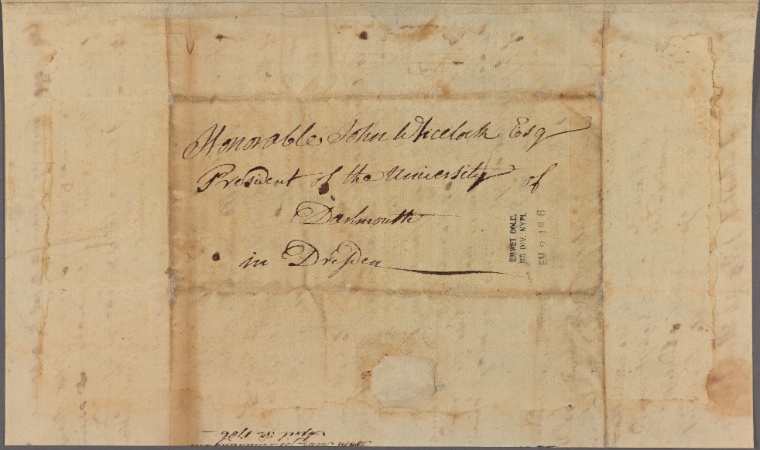 Honorable John Wheelock Esq
President of the University of
Dartmouth
in Dresden
EMMET COLL.
MS DIV. NYPL
April 3d 1786